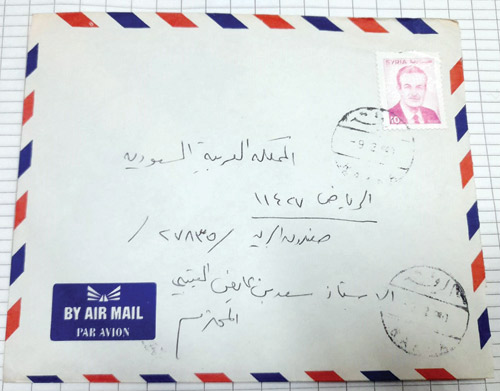 SYRIA
المملكة العربية السعودية
الرياض ١١٤٢٧
صندوق البريد /٢٧٨٣٥/
الاستاذ سعد بن عايض العتيبي
المحترم
BY AIR MAIL
PAR AVION